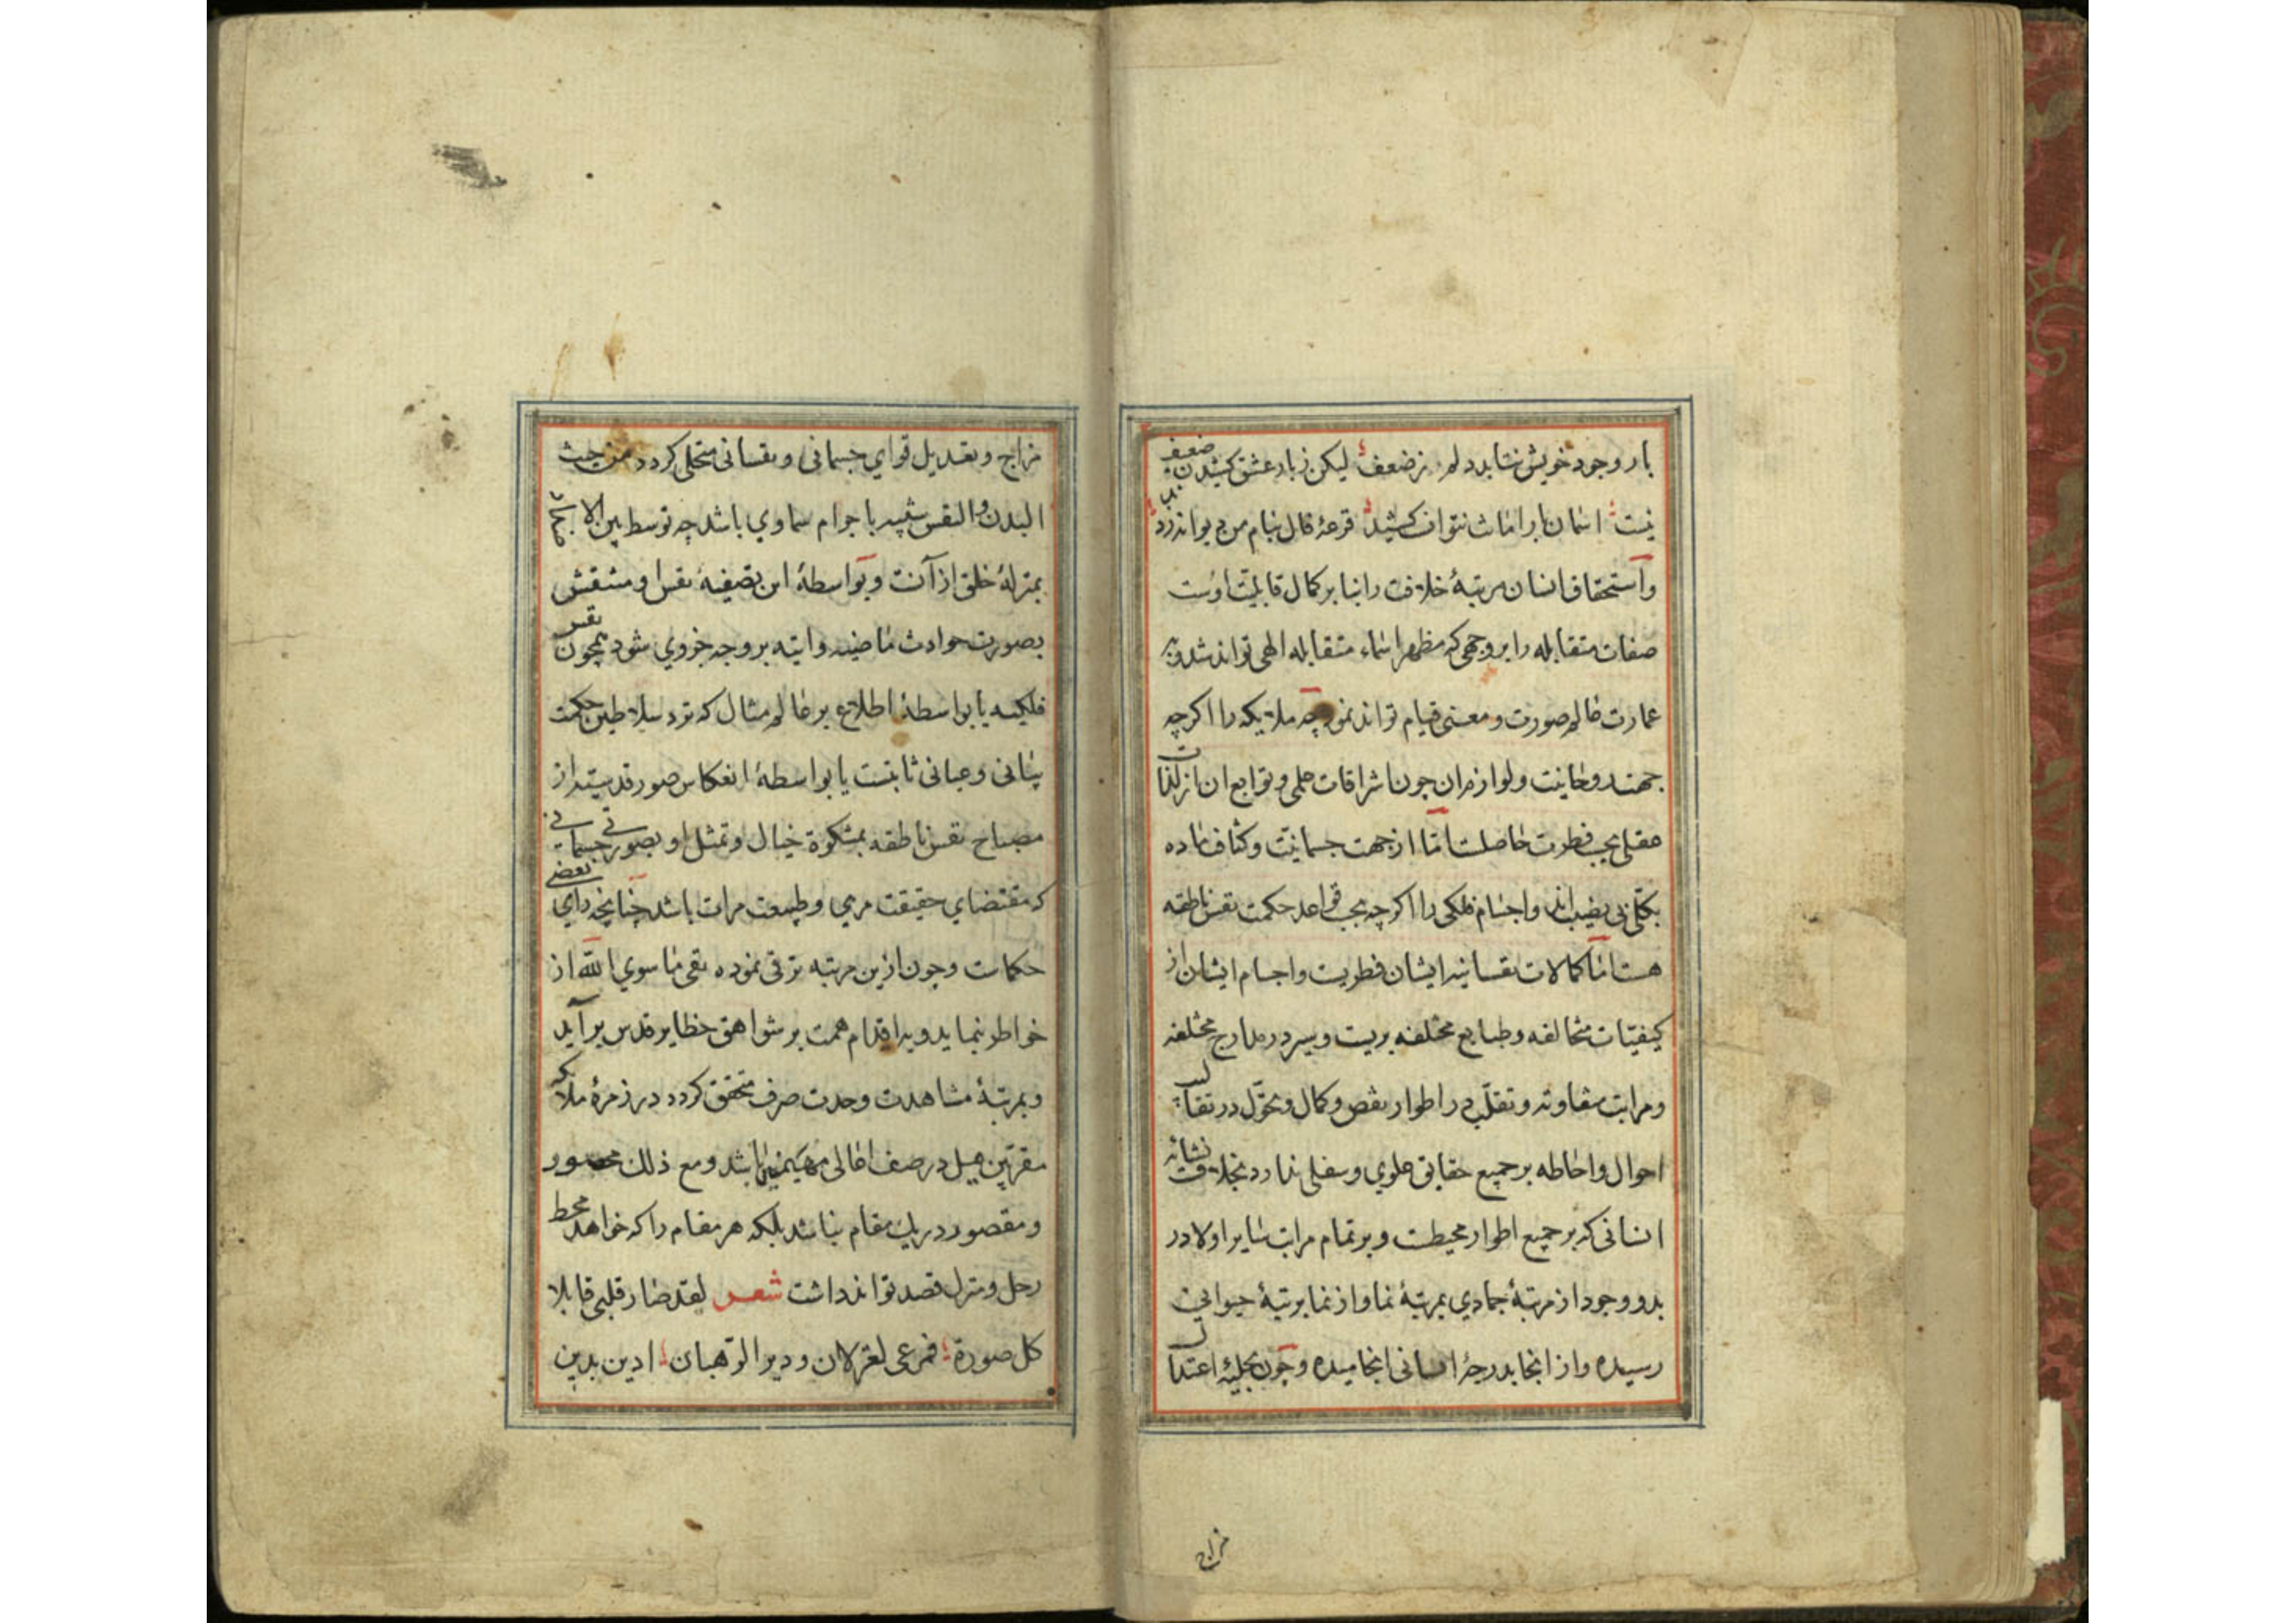 بار وجود خویش نتابد دلم ز ضعف لیکن ز بار عشق کشیدن ضعیف
نیست اسمان بار امانت نتوانست کشید قرعهٔ فال بنام من دیوانه زدند
و استحقاق انسان مرتبهٔ خلافت را بنا بر کمال قابلیت اوست
صفات متقابله را بر وجهی که مظهر اسماء متقابله الهی تواند شد و به
عمارت عالم صورت و معنی قیام تواند نمود چه ملایکه را اگرچه
جهت روحانیت و لوازم ان چون اشراقات علمی و توابع ان از لذات
عقلی بحسب فطرت حاصلست اما از جهت جسمانیت و کثافت ماده
بکلی بی نصیب اند و اجسام فلکی را اگرچه بحسب قواعد حکمت نفس ناطقه
هست اما کمالات نفسانیه ایشان فطریست و اجسام ایشان از
کیفیات متخالفه و طبایع مختلفه بریست و سیر در مدارج مختلفه
و مراتب متفاوته و تقلب در اطوار نقص و کمال و تحول در تقالیب
احوال و احاطه بر جمیع حقایق علوی و سفلی ندارد بخلاف نشاءٔه
انسانی که بر جمیع اطوار محیطست و بر تمام مراتب سایر اولا در
بدو وجود از مرتبهٔ جمادی بمرتبهٔ نما و از نما برتبهٔ حیوانی
رسیده و از انجا بدرجهٔ انسانی انجامیده و چون بحلیهٔ اعتدال
مزاج
مزاج و تعدیل قوای جسمانی و نفسانی متحلی کردد من حیث
البدن و النفس شبیه باجرام سماوی باشد چه توسط بین الاجسام
بمنزلهٔ خلق از آنست و بواسطهٔ این تصفیهٔ نفس او منتقش
بصورت حوادث ماضیه و اتیه بر وجه جزوی شود همچون نفس
فلکیه یا بواسطهٔ اطلاع بر عالم مثال که نزد سلاطین حکمت
بیانی و عیانی ثابتست یا بواسطهٔ انعکاس صور قدسیه از
مصباح نفس ناطقه بمشکوة خیال و تمثل او بصورتی جسمانی
که مقتضای حقیقت مرمی و طبیعت مرات باشد چنانچه رای بعضی
حکماست و چون ازین مرتبه ترقی نموده نفی ماسوی الله از
خواطر نماید و بر اقدام همت بر شواهق حظایر قدس برآید
و بمرتبهٔ مشاهدت وحدت صرف متحقق کردد در زمرهٔ ملایکه
مقربین بل در صف اعالی مهیمین باشد و مع ذلک محصور
و مقصور در یک مقام نباشد بلکه هر مقام را که خواهد محط
رحل و منزل قصد تواند داشت شعر لقد صار قلبی قابلا
کل صورة فمرعی لغزلان و دیرا لرهبان ادین بدین